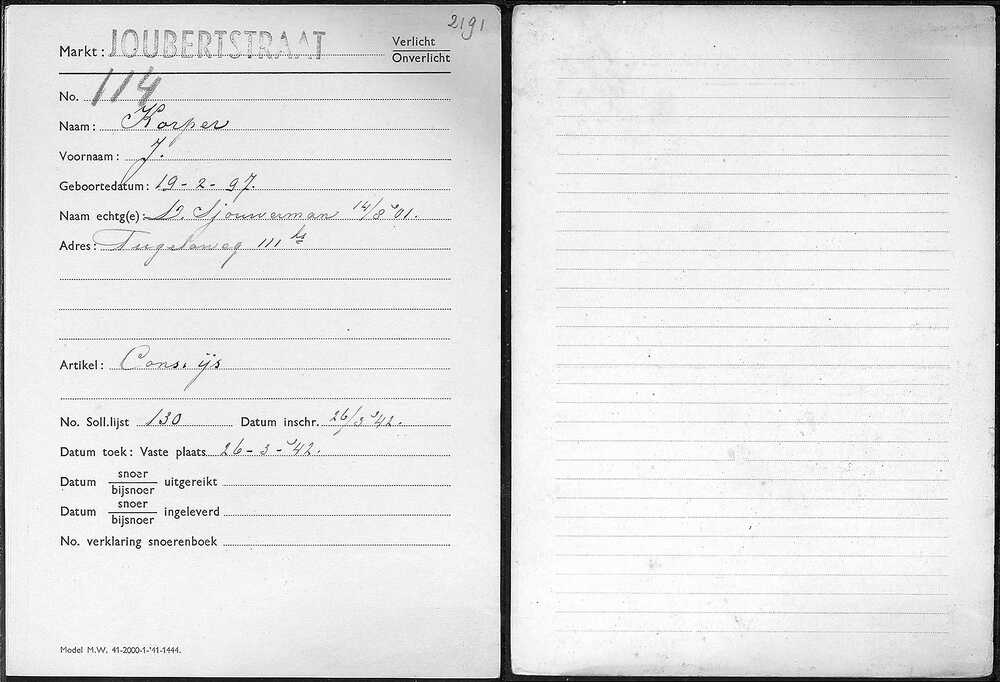 2191
Markt: JOUBERTSTRAAT Verlicht
Onverlicht
No. 114
Naam: Korper
Voornaam: J.
Geboortedatum: 19-2-97.
Naam echtg(e): D. Sjouwerman 14/8 '01.
Adres: Tugelaweg 111 hs
Artikel: Cons. ijs
No. Soll.lijst 130 Datum inschr. 26/3 '42.
Datum toek: Vaste plaats 26-3-'42.
Datum snoer uitgereikt
bijsnoer
Datum snoer ingeleverd
bijsnoer
No. verklaring snoerenboek
Model M.W. 41-2000-1-'41-1444.